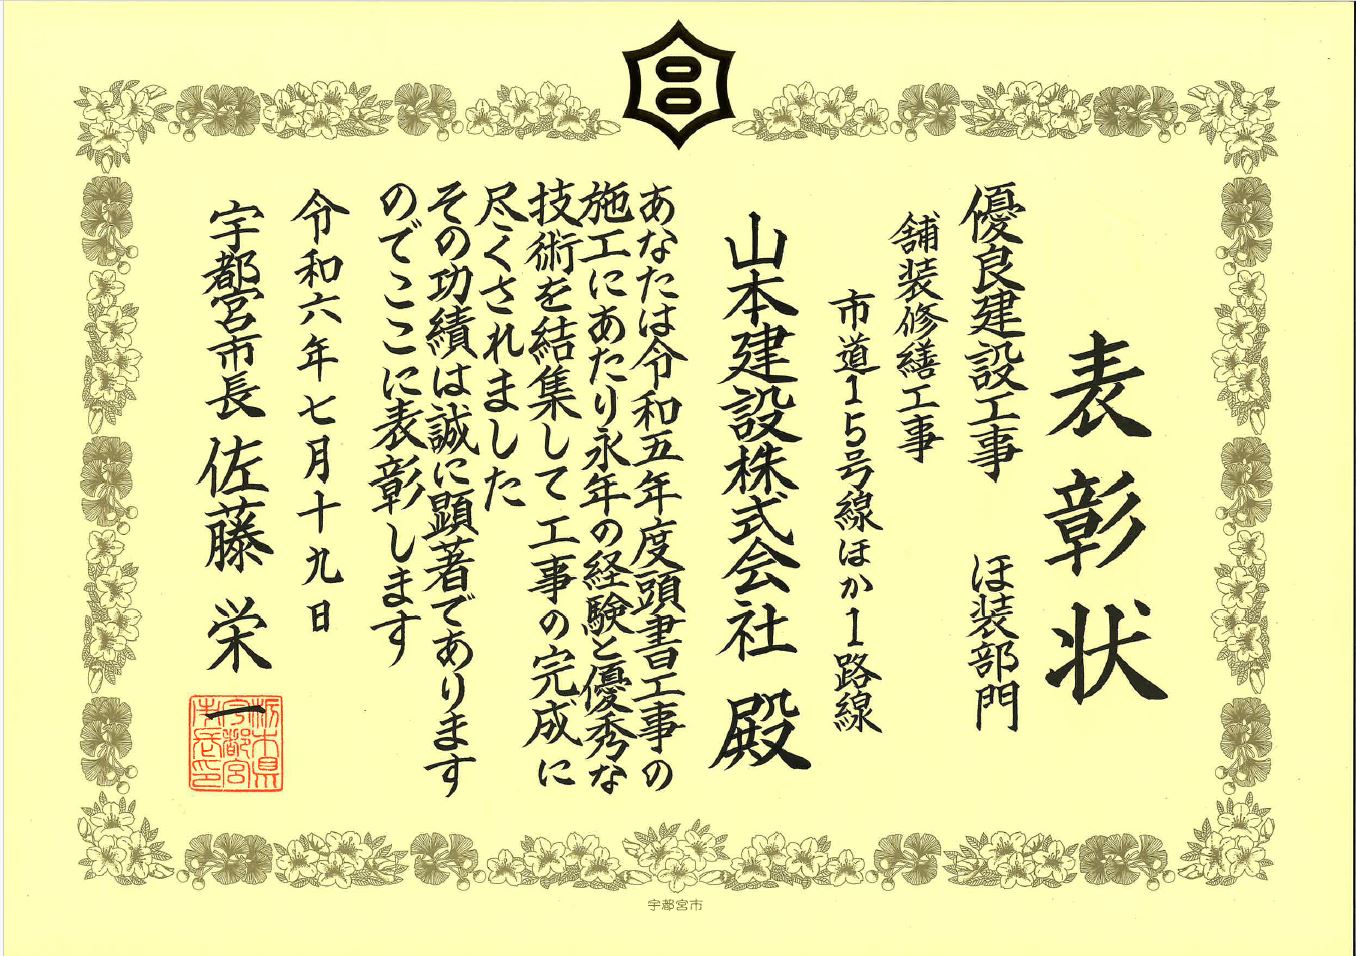 表彰状
優良建設工事 ほ装部門
舗装修繕工事
市道15号線ほか1路線
山本建設株式会社 殿
あなたは令和五年度頭書工事の
施工にあたり永年の経験と優秀な
技術を結集して工事の完成に
尽くされました
その功績は誠に顕著であります
のでここに表彰します
令和六年七月十九日
宇都宮市長 佐藤栄一
栃木県
宇都宮
市長印
宇都宮市